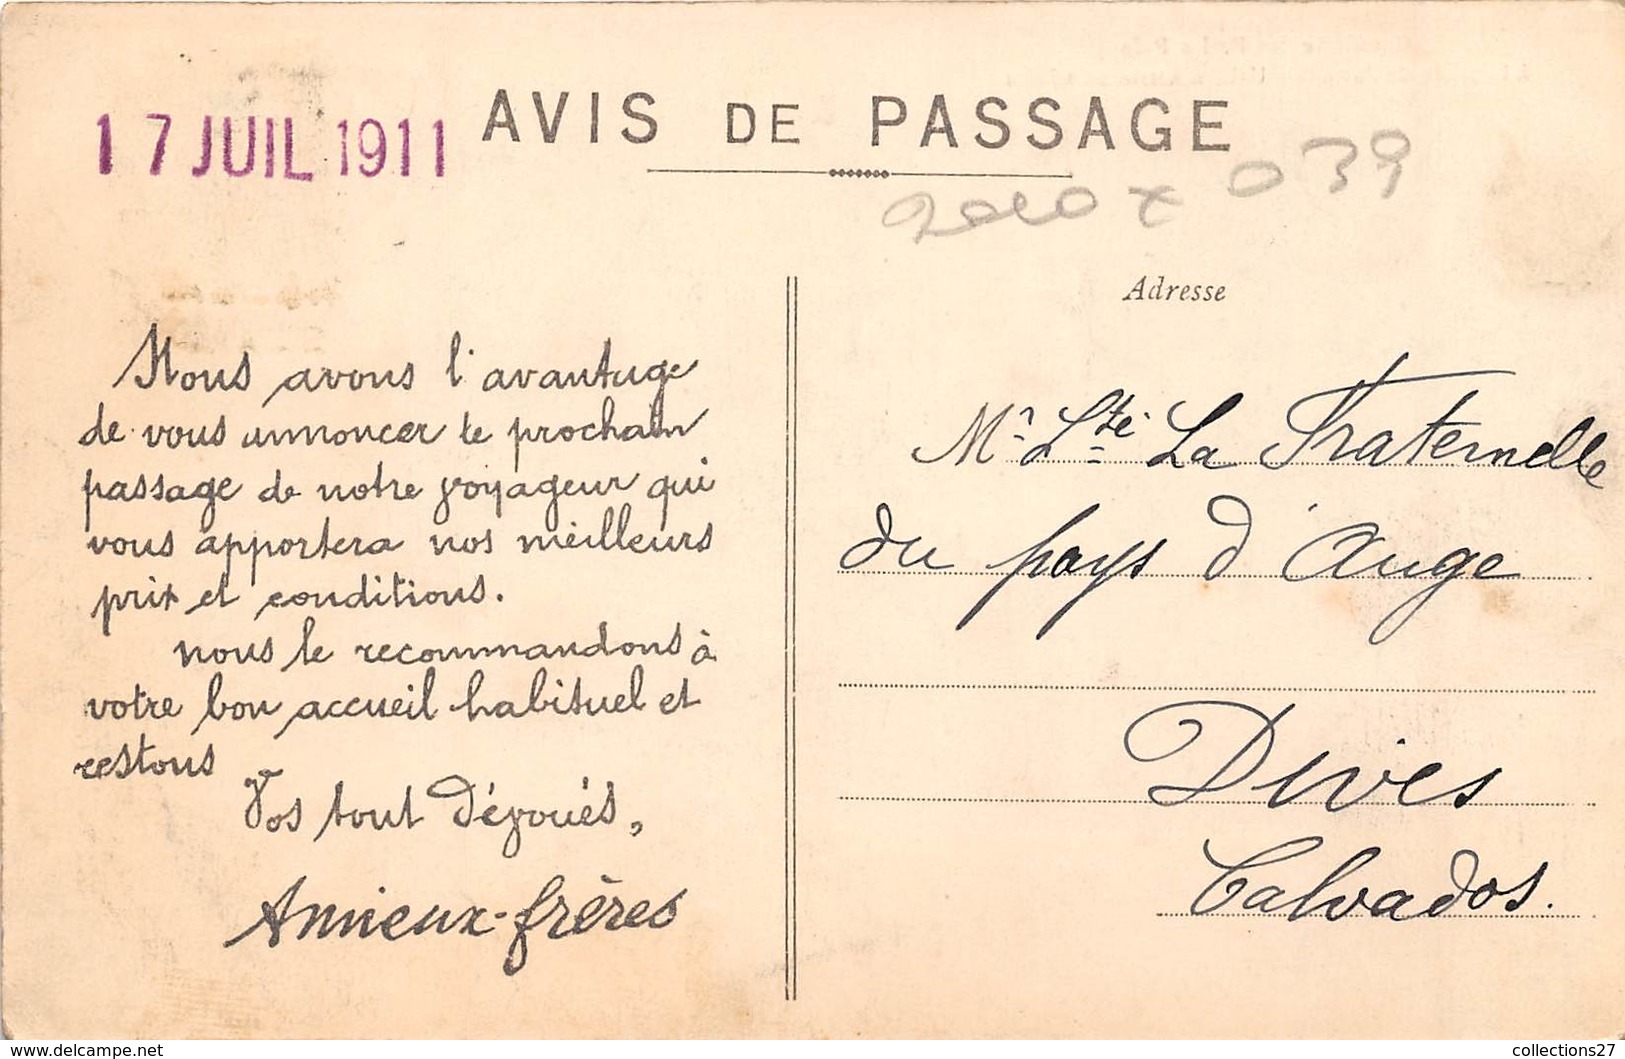 17 JUIL 1911
AVIS DE PASSAGE
039
Adresse
Nous avons l'avantage
de vous annoncer le prochain
passage de notre voyageur qui
vous apportera nos meilleurs
prix et conditions.
nous le recommandons à
votre bon accueil habituel et
restons
Vos tout dévoués,
Amieux-frères
Mr. Sté La Fraternelle
du pays d'Auge
Dives
Calvados.
collections27
www.delcampe.net